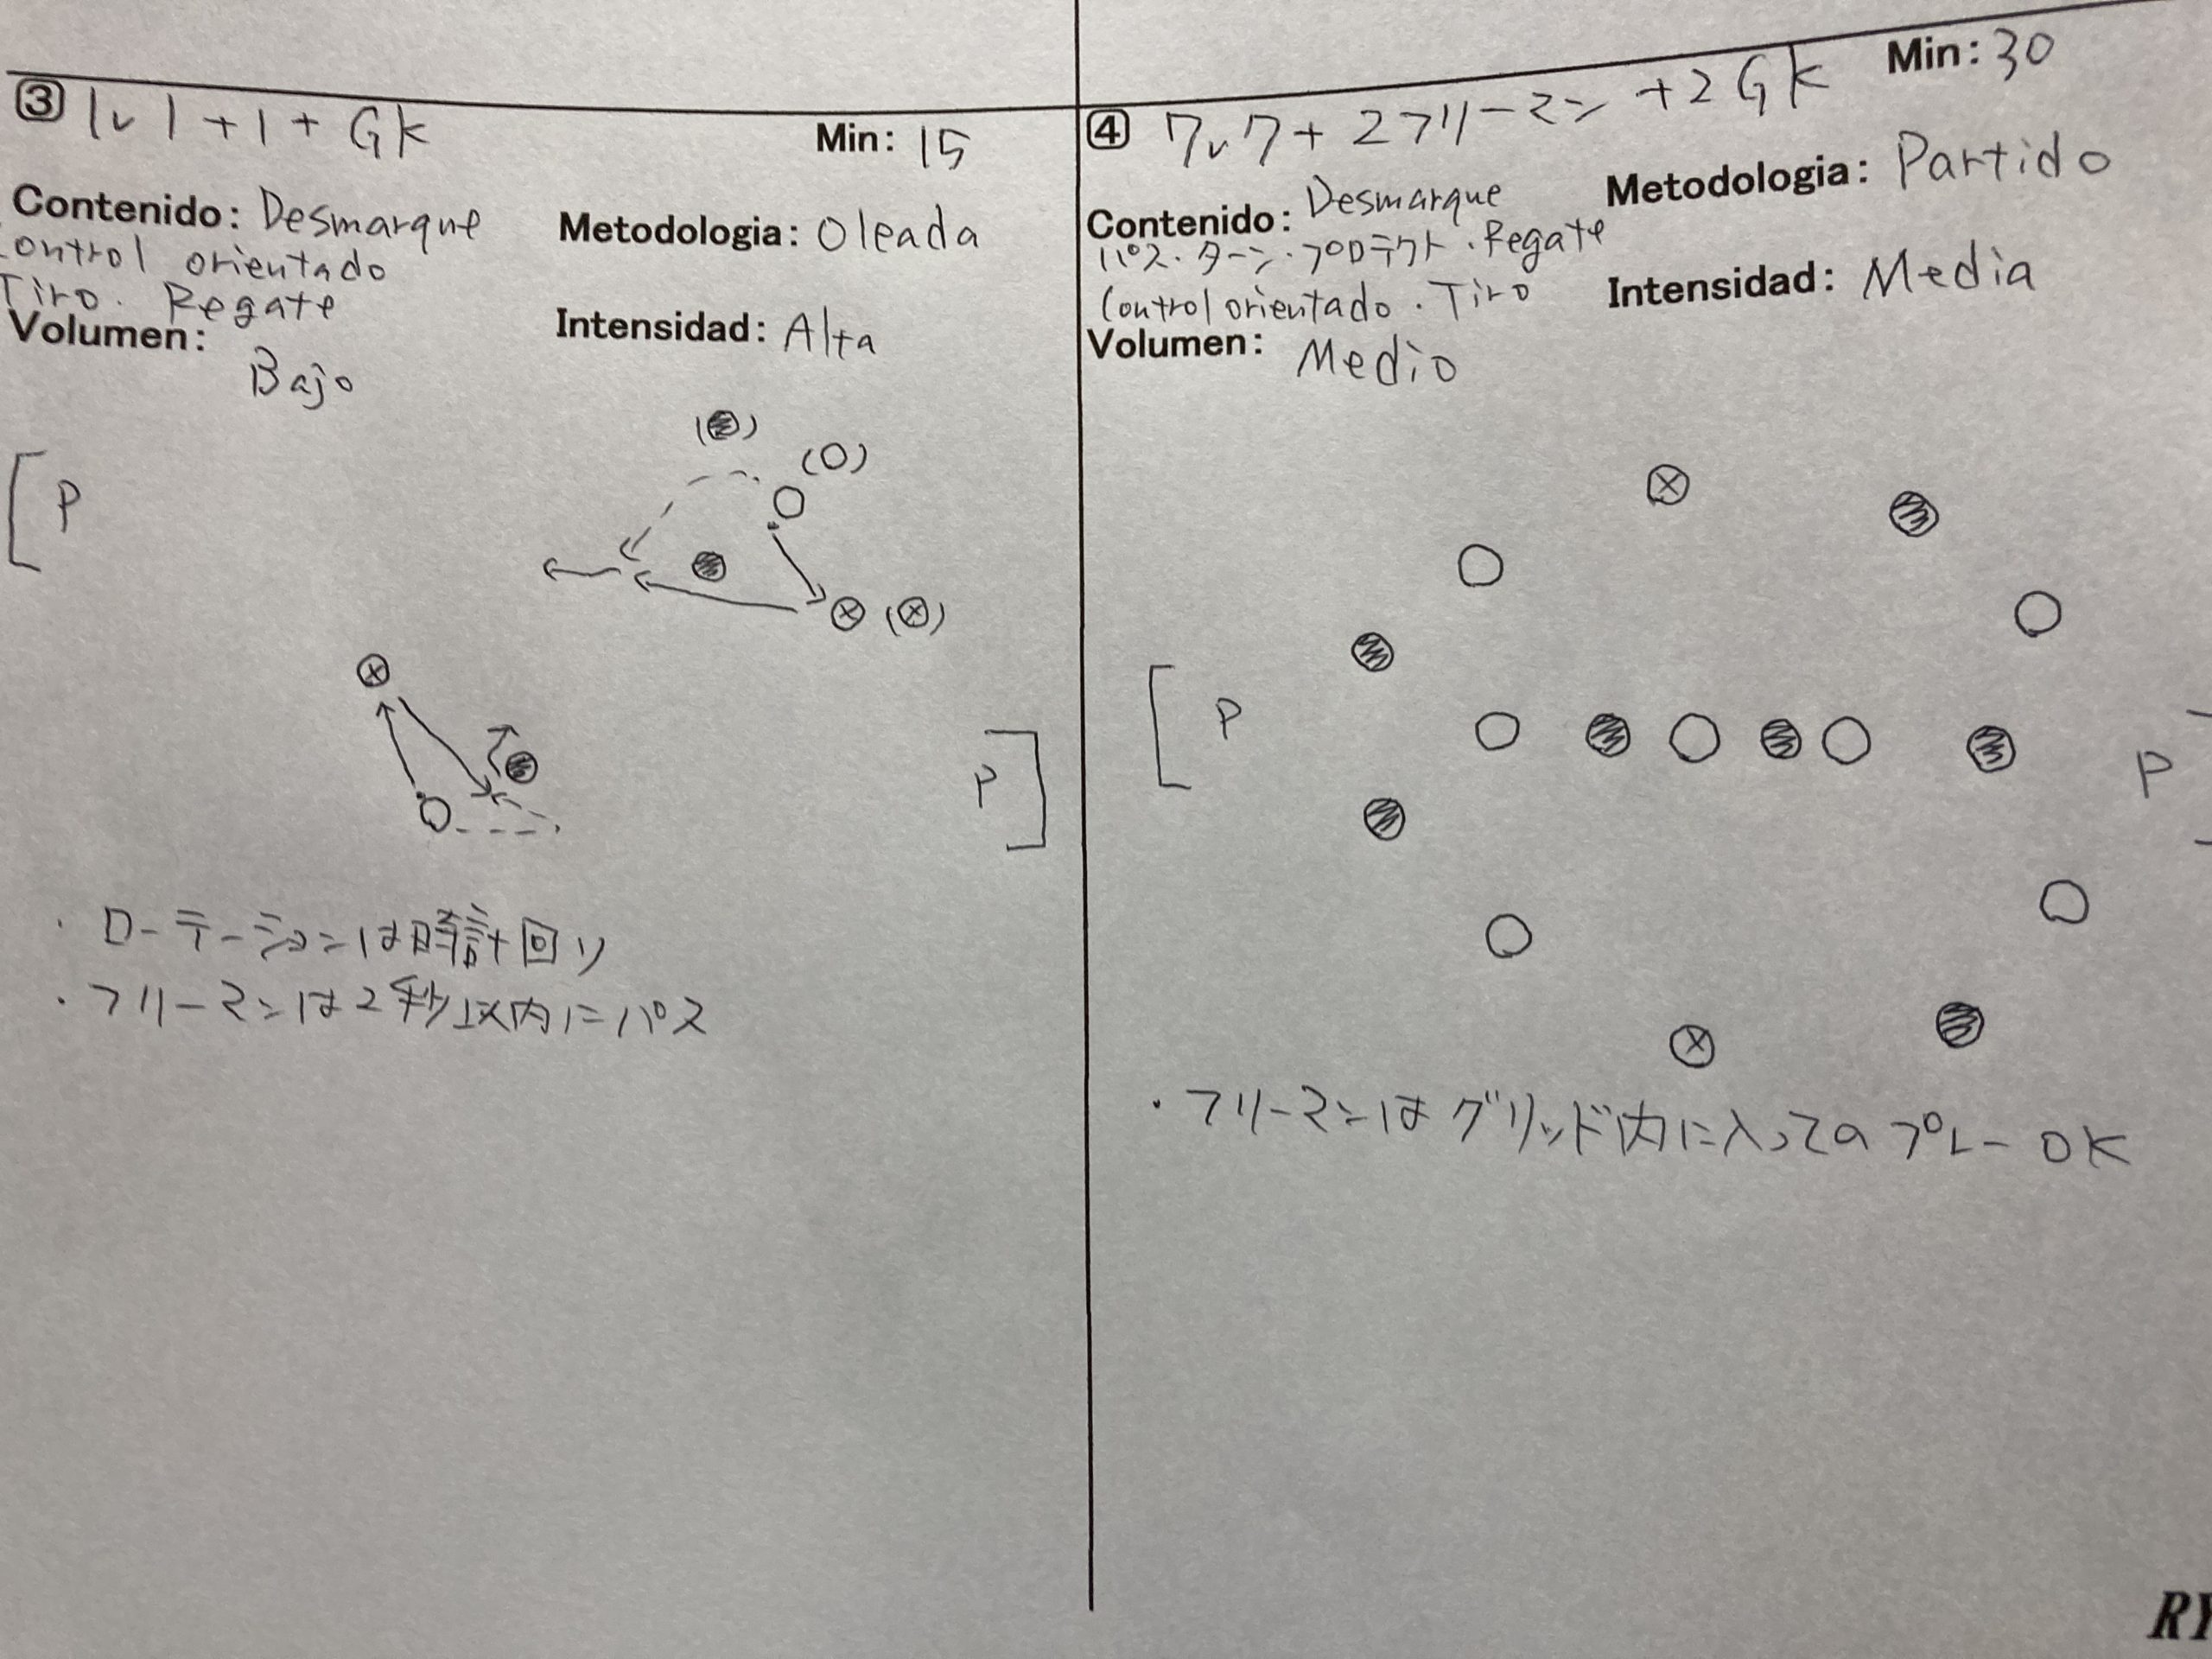 ③ 1v1+1+GK
Min: 15
Contenido: Desmarque
Control orientado
Tiro. Regate
Metodologia: Oleada
Volumen: Bajo
Intensidad: Alta
(O)
P
P
・ローテーションは時計回り
・フリーマンは2秒以内にパス
④ 7v7+2フリーマン+2GK
Min: 30
Contenido: Desmarque
パス・ターン・プロテクト・Regate
Control orientado・Tiro
Metodologia: Partido
Volumen: Medio
Intensidad: Media
P
P
・フリーマンはグリッド内に入ってのプレーOK
RY